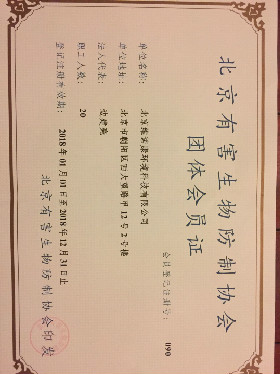 北京有害生物防制协会
团体会员证
会员登记注册号: 090
单位名称: 北京
环境科技有限公司
单位地址: 北京市朝阳区
12号2号楼
法人代表:
职工人数: 20
登记注册有效期: 2018年01月01日至2018年12月31日止
北京有害生物防制协会印发